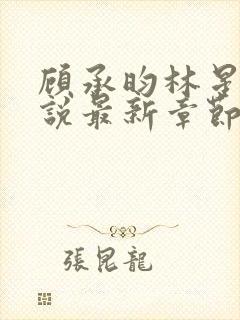 顾承昀林星
說最新章節
張昆龍